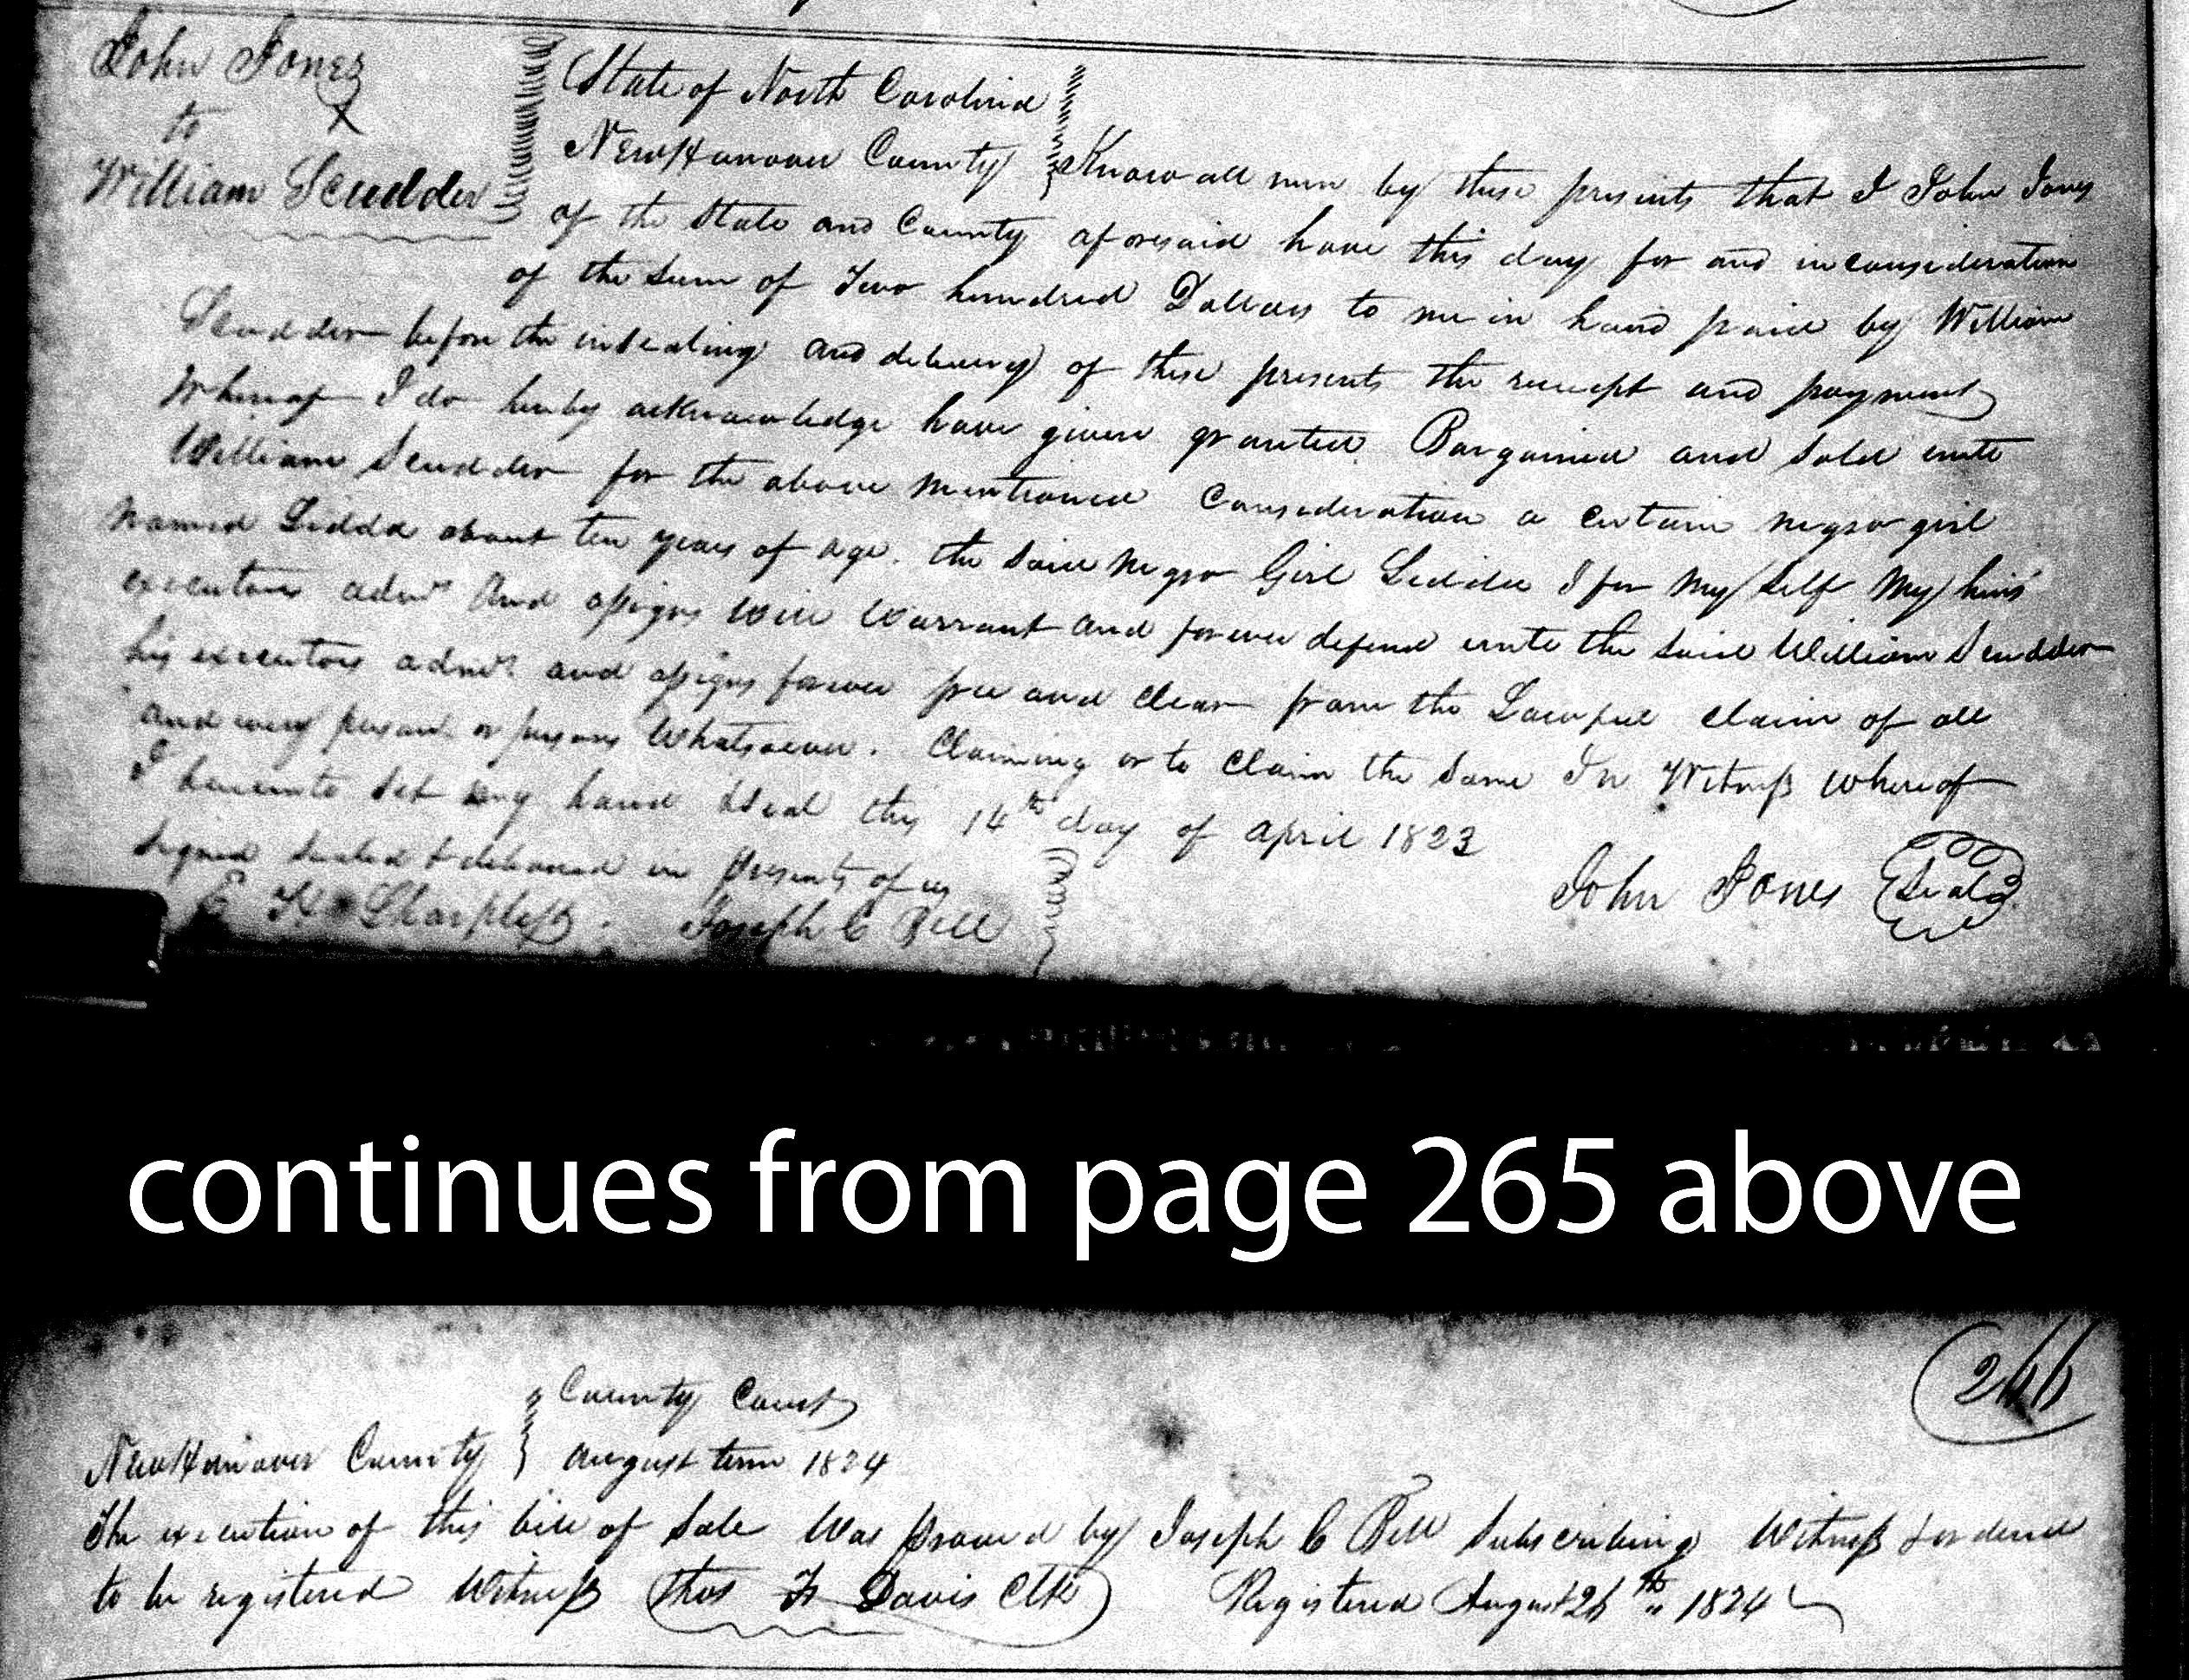 John Jones
to
William Scudder
State of North Carolina
New Hanover County Know all men by these presents that I John Jones
of the State and County aforesaid have this day for and in consideration
of the sum of Two hundred Dollars to me in hand paid by William
Scudder before the insealing and delivery of these presents the receipt and payment
Whereof I do hereby acknowledge have given granted Bargained and Sold unto
William Scudder for the above mentioned Consideration a certain negro girl
named Lidda about ten years of age. the said Negro Girl Lidda I for my self my heirs
executors admrs and assigns will Warrant and forever defend unto the said William Scudder
his executors admrs and assigns forever free and clear from the Lawful claim of all
and every person or persons Whatsoever. Claiming or to Claim the same In Witness whereof
I hereunto set my hand & seal this 14th day of april 1823
signed sealed & delivered in presents of us
E K Sharpless. Joseph C Bell
John Jones Seal
continues from page 265 above
266
County Court
New Hanover County august term 1824
The execution of this bill of sale Was proved by Joseph C Bell Subscribing Witness & ordered
to be registered Witness Thos F Davis Clk Registered August 26th 1824